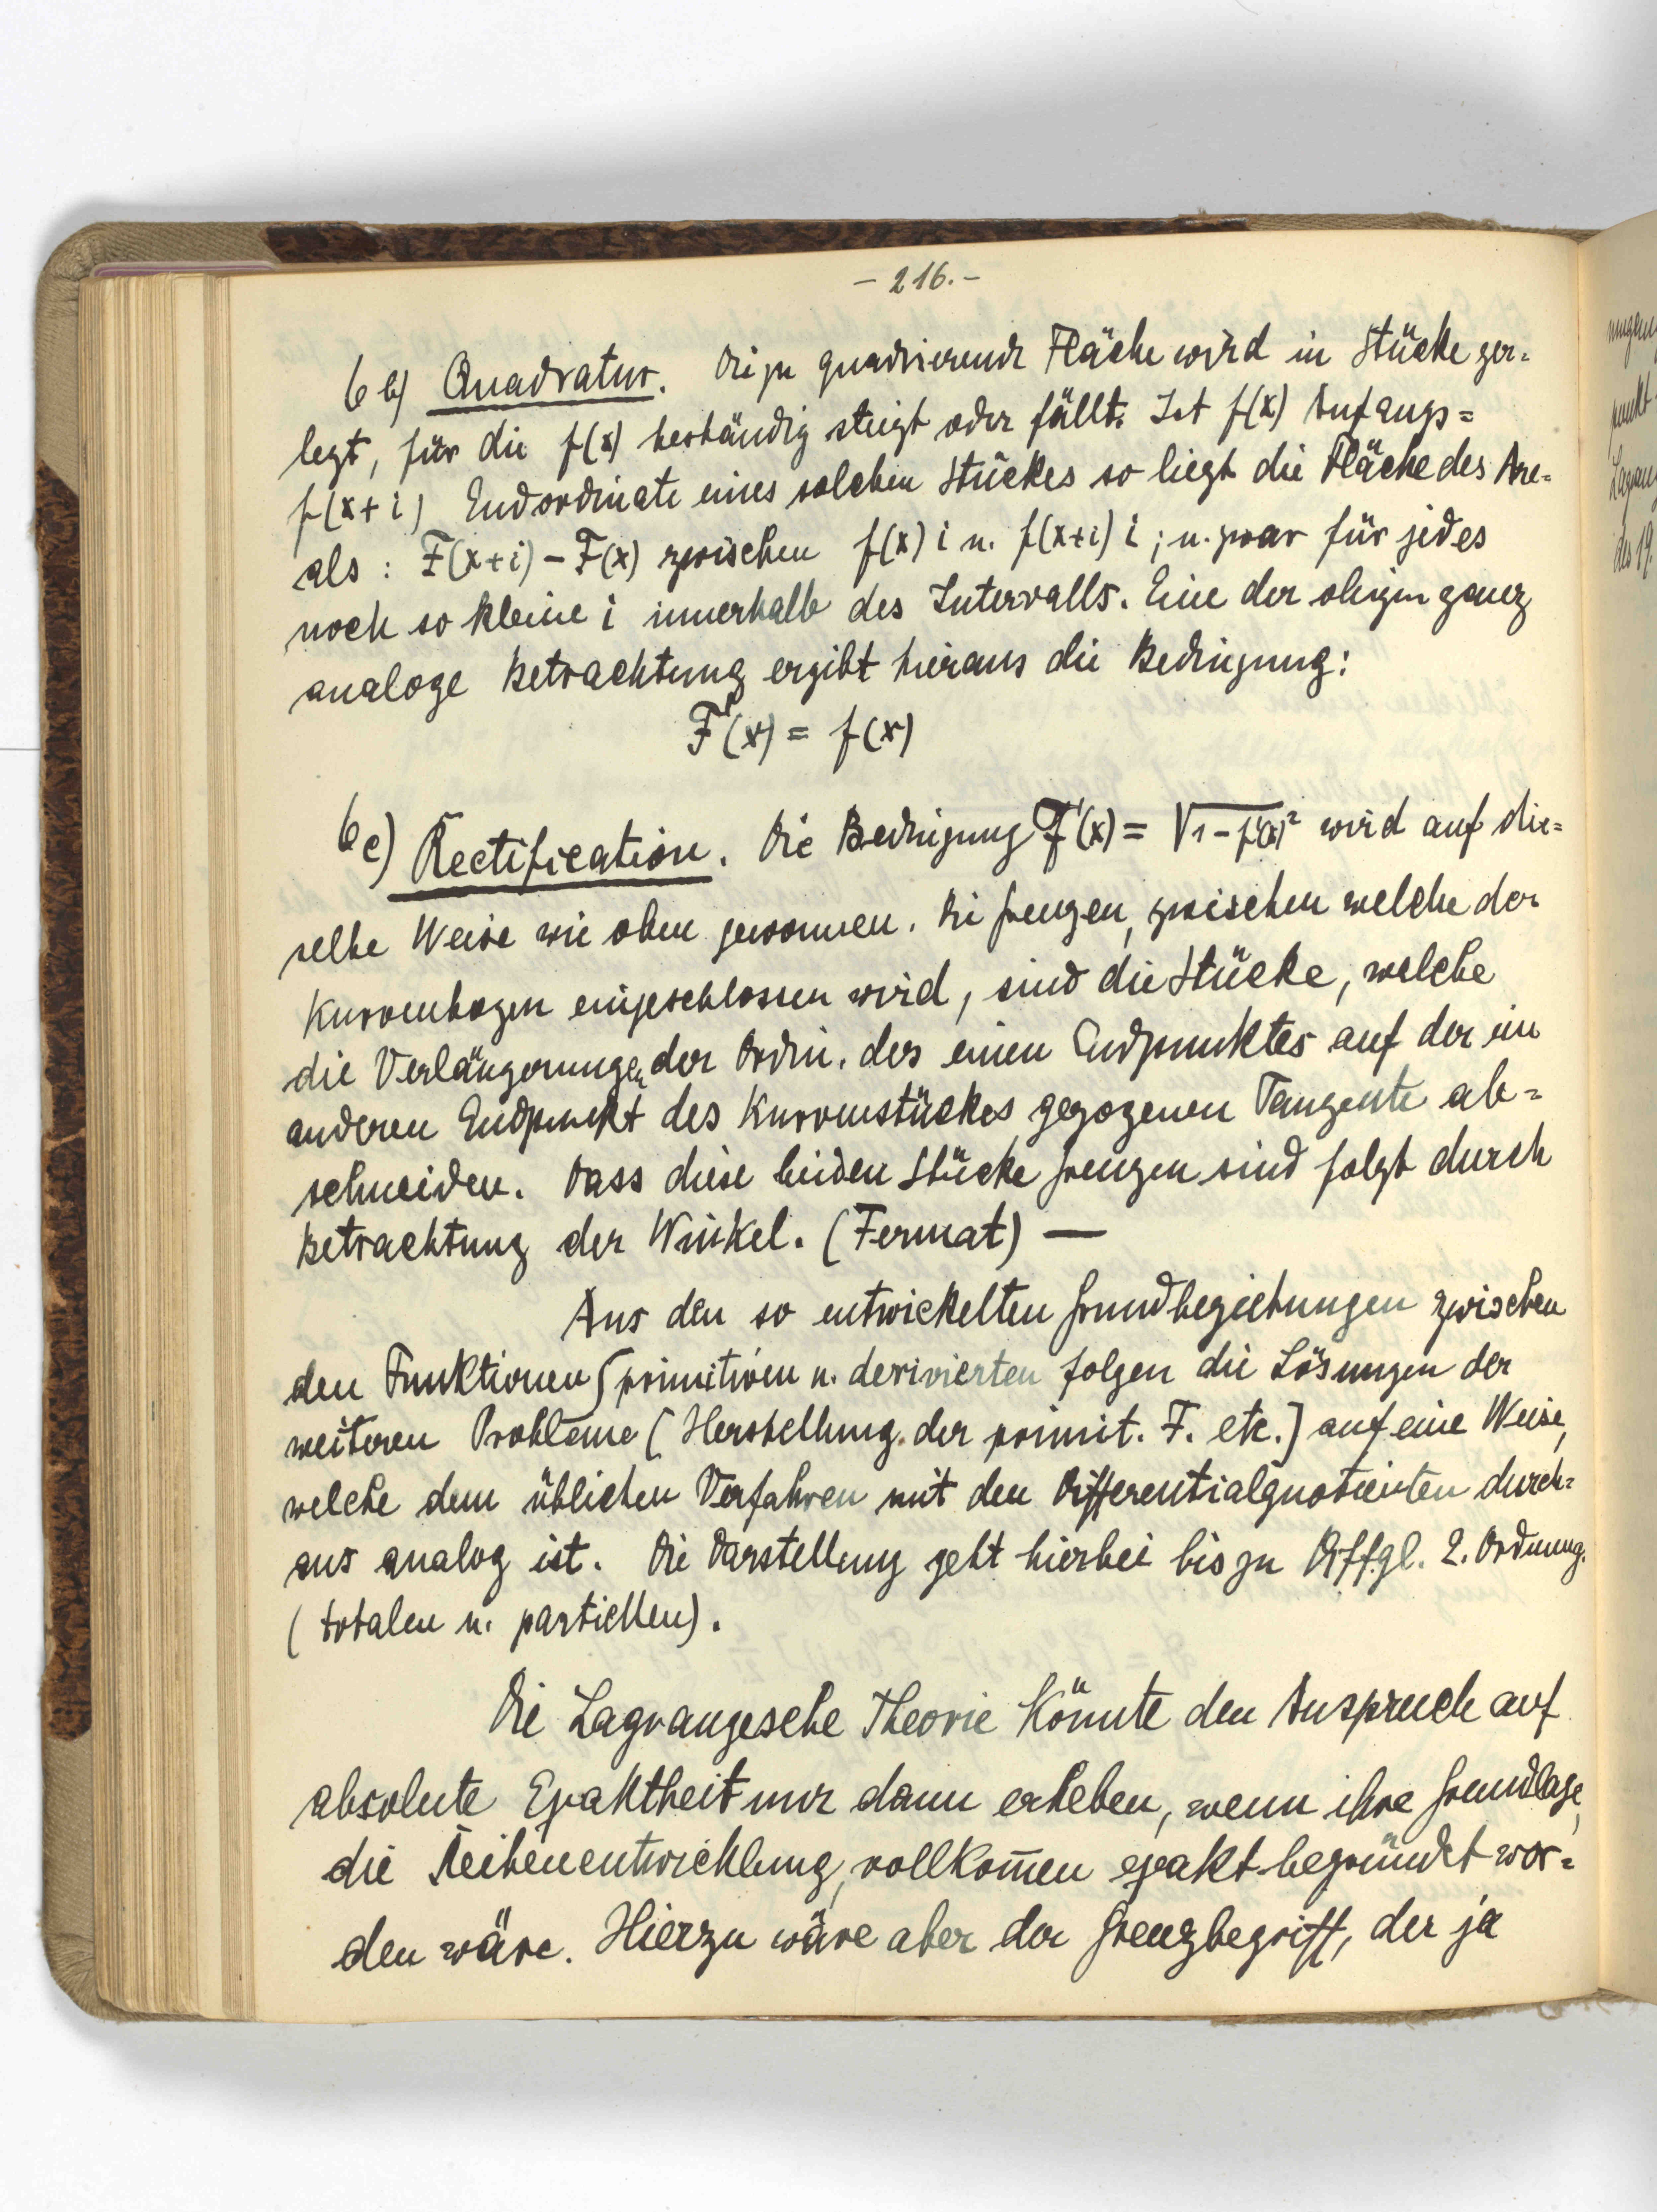 - 216. -
6 b) Quadratur. Die zu quadrierende Fläche wird in Stücke zer=
legt, für die f(x) beständig steigt oder fällt. Ist f(x) Anfangs=
f(x+i) Endordinate eines solchen Stückes so liegt die Fläche des Are=
als: F(x+i) - F(x) zwischen f(x) i u. f(x+i) i; u. zwar für jedes
noch so kleine i innerhalb des Intervalls. Eine der obigen ganz
analoge Betrachtung ergibt hieraus die Bedingung:
F'(x) = f(x)
6 c) Rectification. Die Bedingung F'(x) = √1-f'(x)² wird auf die=
selbe Weise wie oben gewonnen. Die Grenzen, zwischen welche der
Kurvenbogen eingeschlossen wird, sind die Stücke, welche
die Verlängerungen der Ordin. des einen Endpunktes auf der im
anderen Endpunkt des Kurvenstückes gezogenen Tangente ab=
schneiden. Dass diese beiden Stücke Grenzen sind folgt durch
Betrachtung der Winkel. (Fermat) —
Aus den so entwickelten Grundbeziehungen zwischen
den Funktionen (primitiven u. derivierten folgen die Lösungen der
weiteren Probleme (Herstellung der primit. F. etc.) auf eine Weise,
welche dem üblichen Verfahren mit den Differentialquotienten durch=
aus analog ist. Die Darstellung geht hierbei bis zu Diffgl. 2. Ordnung.
(totalen u. partiellen).
Die Lagrangesche Theorie könnte den Anspruch auf
absolute Exaktheit nur dann erheben, wenn ihre Grundlage,
die Reihenentwicklung, vollkom̅en exakt begründet wor=
den wäre. Hierzu wäre aber der Grenzbegriff, der ja
punkt
des 19.